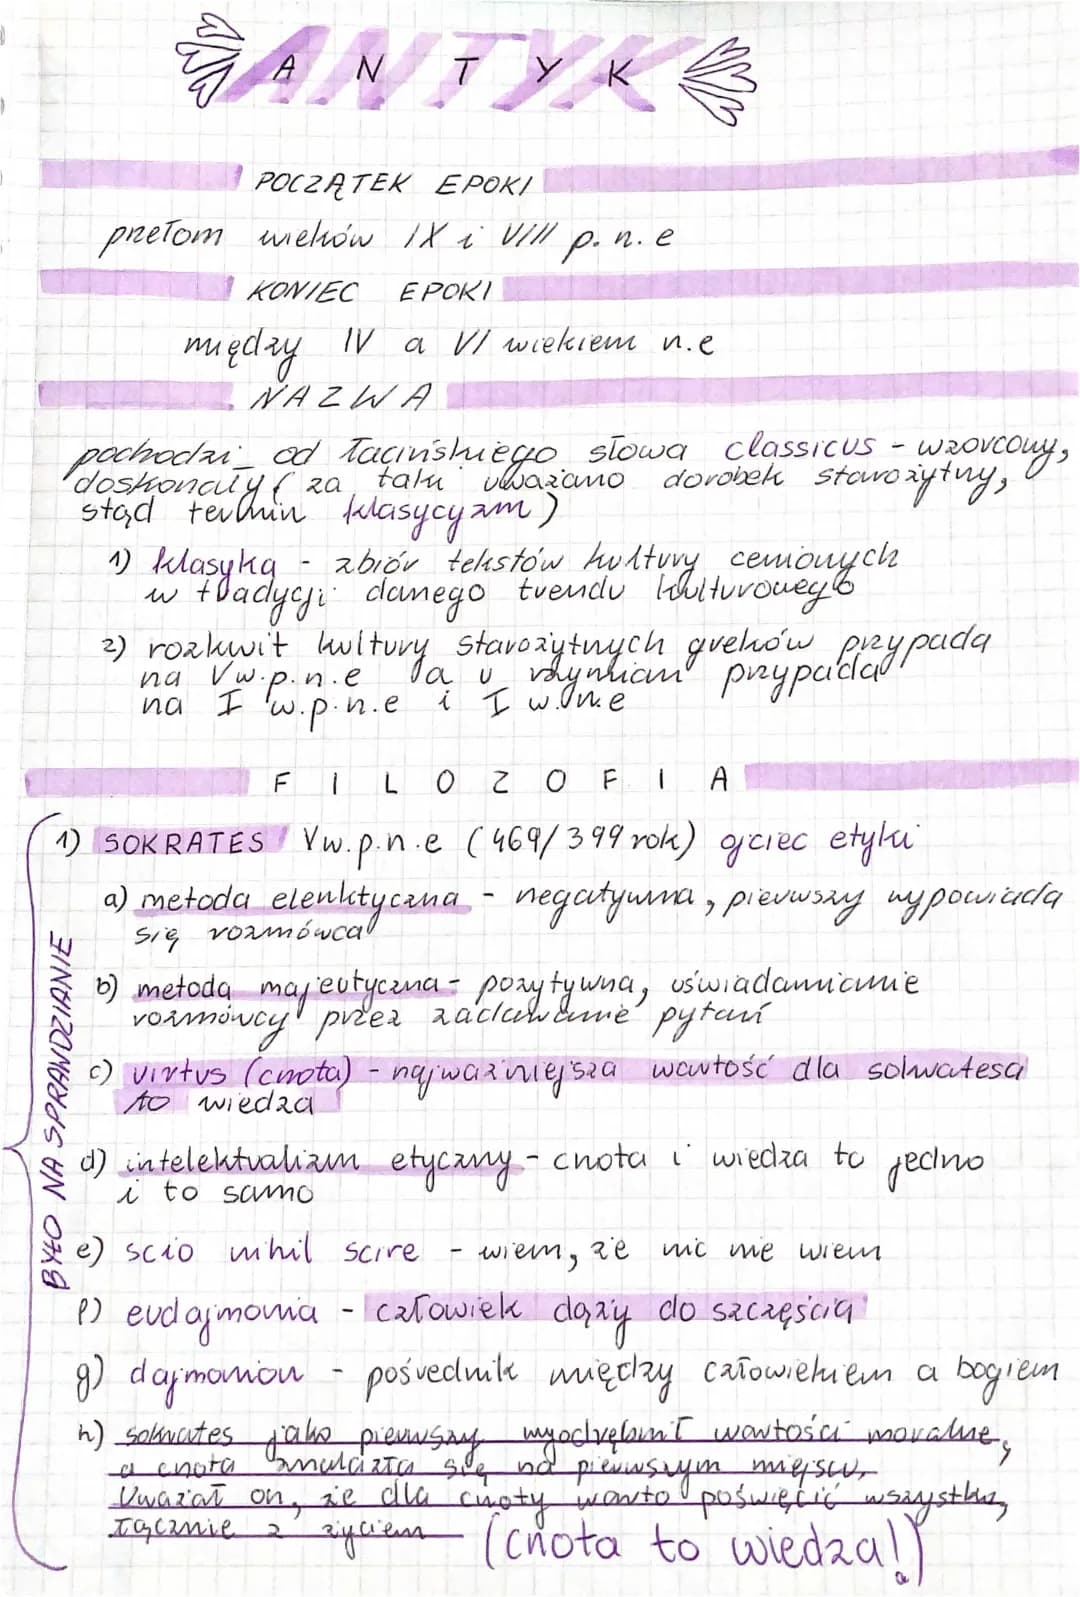 ANTYK
POCZĄTEK EPOKI
przełom wieków IX i VIII p.n.e
KONIEC EPOKI
między IV a VI wiekiem n.e
NAZWA
pochodzi od łacińskiego słowa classicus - wzorcowy,
doskonały (za taki uważano dorobek starożytny,
stąd termin klasycyzm)
1) klasyka - zbiór tekstów kultury cenionych
w tradycji danego trendu kulturowego
2) rozkwit kultury starożytnych greków przypada
na V w.p.n.e a u rzymian przypada
na I w.p.n.e i I w.n.e
FILOZOFIA
BYŁO NA SPRAWDZIANIE
1) SOKRATES V w.p.n.e (469/399 rok) ojciec etyki
a) metoda elenktyczna - negatywna, pierwszy wypowiada
się rozmówca
b) metoda majeutyczna - pozytywna, uświadamianie
rozmówcy przez zadawanie pytań
c) virtus (cnota) - najważniejsza wartość dla sokratesa
to wiedza
d) intelektualizm etyczny - cnota i wiedza to jedno
i to samo
e) scio nihil scire - wiem, że nic nie wiem
f) eudajmonia - człowiek dąży do szczęścia
g) dajmonion - pośrednik między człowiekiem a bogiem
h) sokrates jako pierwszy wyodrębnił wartości moralne,
a cnota znalazła się na pierwszym miejscu.
Uważał on, że dla cnoty warto poświęcić wszystko,
łącznie z życiem (cnota to wiedza!)